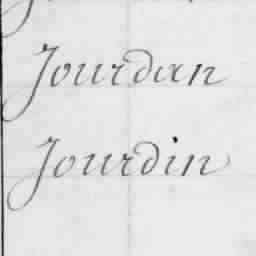 Jourdan
Jourdin